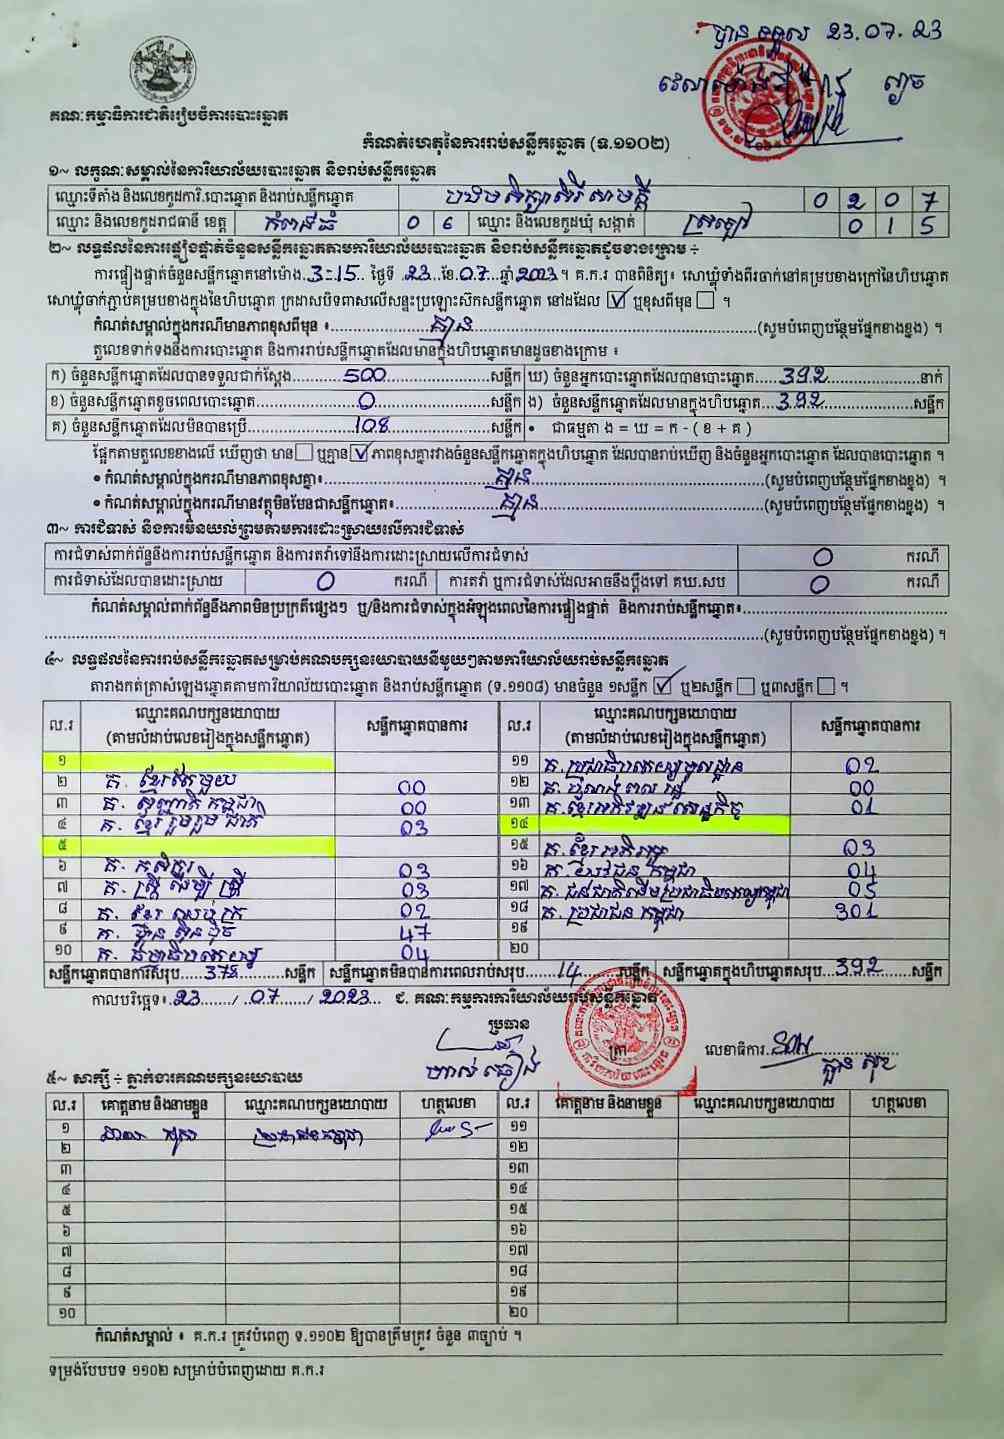 បានទទួល 23.07.23
គណៈកម្មាធិការជាតិរៀបចំការបោះឆ្នោត
កំណត់ហេតុនៃការរាប់សន្លឹកឆ្នោត (ទ.១១០២)
១~ លក្ខណៈសម្គាល់នៃការិយាល័យបោះឆ្នោត និងរាប់សន្លឹកឆ្នោត
ឈ្មោះទីតាំង និងលេខកូដការិ.បោះឆ្នោត និងរាប់សន្លឹកឆ្នោត 0 2 0 7
ឈ្មោះ និងលេខកូដរាជធានី ខេត្ត កំពង់ធំ 0 6 ឈ្មោះ និងលេខកូដឃុំ សង្កាត់ 0 1 5
២~ លទ្ធផលនៃការផ្ទៀងផ្ទាត់ចំនួនសន្លឹកឆ្នោតតាមការិយាល័យបោះឆ្នោត និងរាប់សន្លឹកឆ្នោតដូចខាងក្រោម ÷
ការផ្ទៀងផ្ទាត់ចំនួនសន្លឹកឆ្នោតនៅម៉ោង..3-15.. ថ្ងៃទី .23.ខែ.07..ឆ្នាំ2023។ គ.ក.រ បានពិនិត្យ៖ សោឃ្លុំទាំងពីរចាក់នៅគម្របខាងក្រៅនៃហិបឆ្នោត
សោឃ្លុំចាក់ភ្ជាប់គម្របខាងក្នុងនៃហិបឆ្នោត ក្រដាសបិទពាសលើសន្ទះប្រឡោះស៊កសន្លឹកឆ្នោត នៅដដែល ☑ ឬខុសពីមុន ☐ ។
កំណត់សម្គាល់ក្នុងករណីមានភាពខុសពីមុន ៖ គ្មាន (សូមបំពេញបន្ថែមផ្នែកខាងខ្នង) ។
តួលេខទាក់ទងនឹងការបោះឆ្នោត និងការរាប់សន្លឹកឆ្នោតដែលមានក្នុងហិបឆ្នោតមានដូចខាងក្រោម ៖
ក) ចំនួនសន្លឹកឆ្នោតដែលបានទទួលជាក់ស្តែង 500 សន្លឹក ឃ) ចំនួនអ្នកបោះឆ្នោតដែលបានបោះឆ្នោត 392 នាក់
ខ) ចំនួនសន្លឹកឆ្នោតខូចពេលបោះឆ្នោត 0 សន្លឹក ង) ចំនួនសន្លឹកឆ្នោតដែលមានក្នុងហិបឆ្នោត 392 សន្លឹក
គ) ចំនួនសន្លឹកឆ្នោតដែលមិនបានប្រើ 108 សន្លឹក • ជាធម្មតា ង = ឃ = ក - ( ខ + គ )
ផ្អែកតាមតួលេខខាងលើ ឃើញថា មាន ☐ ឬគ្មាន ☑ ភាពខុសគ្នារវាងចំនួនសន្លឹកឆ្នោតក្នុងហិបឆ្នោត ដែលបានរាប់ឃើញ និងចំនួនអ្នកបោះឆ្នោត ដែលបានបោះឆ្នោត ។
• កំណត់សម្គាល់ក្នុងករណីមានភាពខុសគ្នា៖ គ្មាន (សូមបំពេញបន្ថែមផ្នែកខាងខ្នង) ។
• កំណត់សម្គាល់ក្នុងករណីមានវត្ថុមិនមែនជាសន្លឹកឆ្នោត៖ គ្មាន (សូមបំពេញបន្ថែមផ្នែកខាងខ្នង) ។
៣~ ការជំទាស់ និងការមិនយល់ព្រមតាមការដោះស្រាយលើការជំទាស់
ការជំទាស់ពាក់ព័ន្ធនឹងការរាប់សន្លឹកឆ្នោត និងការតវ៉ាទៅនឹងការដោះស្រាយលើការជំទាស់ 0 ករណី
ការជំទាស់ដែលបានដោះស្រាយ 0 ករណី ការតវ៉ា ឬការជំទាស់ដែលអាចនឹងប្តឹងទៅ គឃ.សប 0 ករណី
កំណត់សម្គាល់ពាក់ព័ន្ធនឹងភាពមិនប្រក្រតីផ្សេងៗ ឬ/និងការជំទាស់ក្នុងអំឡុងពេលនៃការផ្ទៀងផ្ទាត់ និងការរាប់សន្លឹកឆ្នោត៖
(សូមបំពេញបន្ថែមផ្នែកខាងខ្នង) ។
៤~ លទ្ធផលនៃការរាប់សន្លឹកឆ្នោតសម្រាប់គណបក្សនយោបាយនីមួយៗតាមការិយាល័យរាប់សន្លឹកឆ្នោត
តារាងកត់ត្រាសំឡេងឆ្នោតតាមការិយាល័យបោះឆ្នោត និងរាប់សន្លឹកឆ្នោត (ទ.១១០៨) មានចំនួន ១សន្លឹក ☑ ឬ២សន្លឹក ☐ ឬ៣សន្លឹក ☐ ។
ល.រ ឈ្មោះគណបក្សនយោបាយ (តាមលំដាប់លេខរៀងក្នុងសន្លឹកឆ្នោត) សន្លឹកឆ្នោតបានការ ល.រ ឈ្មោះគណបក្សនយោបាយ (តាមលំដាប់លេខរៀងក្នុងសន្លឹកឆ្នោត) សន្លឹកឆ្នោតបានការ
១ ១១ គ. ប្រជាធិបតេយ្យមូលដ្ឋាន 02
២ គ. ខ្មែរតែមួយ 00 ១២ 00
៣ គ. សញ្ជាតិកម្ពុជា 00 ១៣ គ. ខ្មែរអភិវឌ្ឍន៍សេដ្ឋកិច្ច 01
៤ គ. ខ្មែររួបរួមជាតិ 03 ១៤
៥ ១៥ គ. ខ្មែរអភិរក្ស 03
៦ គ. កសិករ 03 ១៦ គ. យុវជនកម្ពុជា 04
៧ គ. ស្ត្រីដើម្បីស្ត្រី 03 ១៧ គ. ជនជាតិដើមប្រជាធិបតេយ្យកម្ពុជា 05
៨ គ. ខ្មែរឈប់ក្រ 02 ១៨ គ. ប្រជាជនកម្ពុជា 301
៩ គ. ហ្វ៊ុនស៊ិនប៉ិច 47 ១៩
១០ គ. ធម្មាធិបតេយ្យ 04 ២០
សន្លឹកឆ្នោតបានការសរុប 378 សន្លឹក សន្លឹកឆ្នោតមិនបានការពេលរាប់សរុប 14 សន្លឹក សន្លឹកឆ្នោតក្នុងហិបឆ្នោតសរុប 392 សន្លឹក
កាលបរិច្ឆេទ៖ 23 / 07 / 2023 ជ. គណៈកម្មការការិយាល័យរាប់សន្លឹកឆ្នោត
ប្រធាន ត្រា លេខាធិការ
៥~ សាក្សី ÷ ភ្នាក់ងារគណបក្សនយោបាយ
ល.រ គោត្តនាម និងនាមខ្លួន ឈ្មោះគណបក្សនយោបាយ ហត្ថលេខា ល.រ គោត្តនាម និងនាមខ្លួន ឈ្មោះគណបក្សនយោបាយ ហត្ថលេខា
១ ប្រជាជនកម្ពុជា ១១
២ ១២
៣ ១៣
៤ ១៤
៥ ១៥
៦ ១៦
៧ ១៧
៨ ១៨
៩ ១៩
១០ ២០
កំណត់សម្គាល់ ៖ គ.ក.រ ត្រូវបំពេញ ទ.១១០២ ឱ្យបានត្រឹមត្រូវ ចំនួន ៣ច្បាប់ ។
ទម្រង់បែបបទ ១១០២ សម្រាប់បំពេញដោយ គ.ក.រ